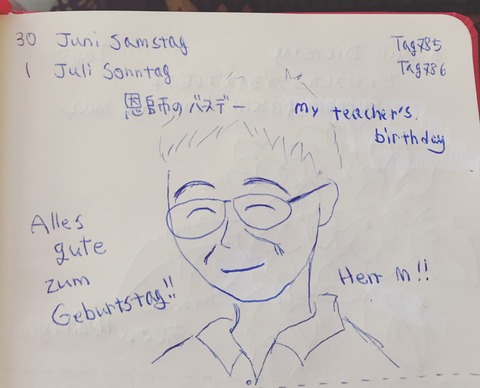 30 Juni Samstag Tag785
1 Juli Sonntag Tag786
恩師のバスデー my teacher's.
birthday
Alles
gute
zum
Geburtstag!!
Herr M!!